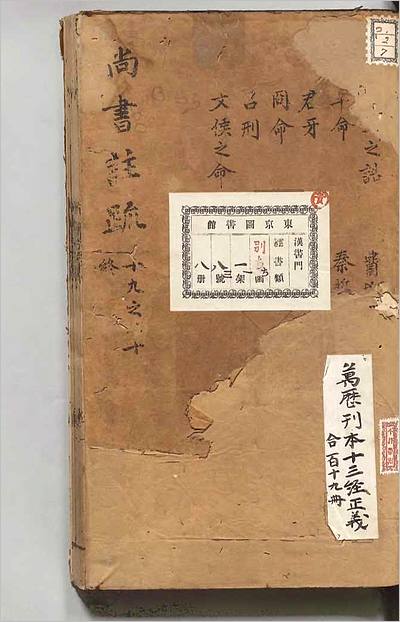 尚書註疏
十九之二十
終
之誥
君牙
冏命
呂刑
文侯之命
費
秦誓
東京圖書館
漢書門
書類
別
函
二架
八三八號
八册
萬曆刊本十三經正義
合百十九冊